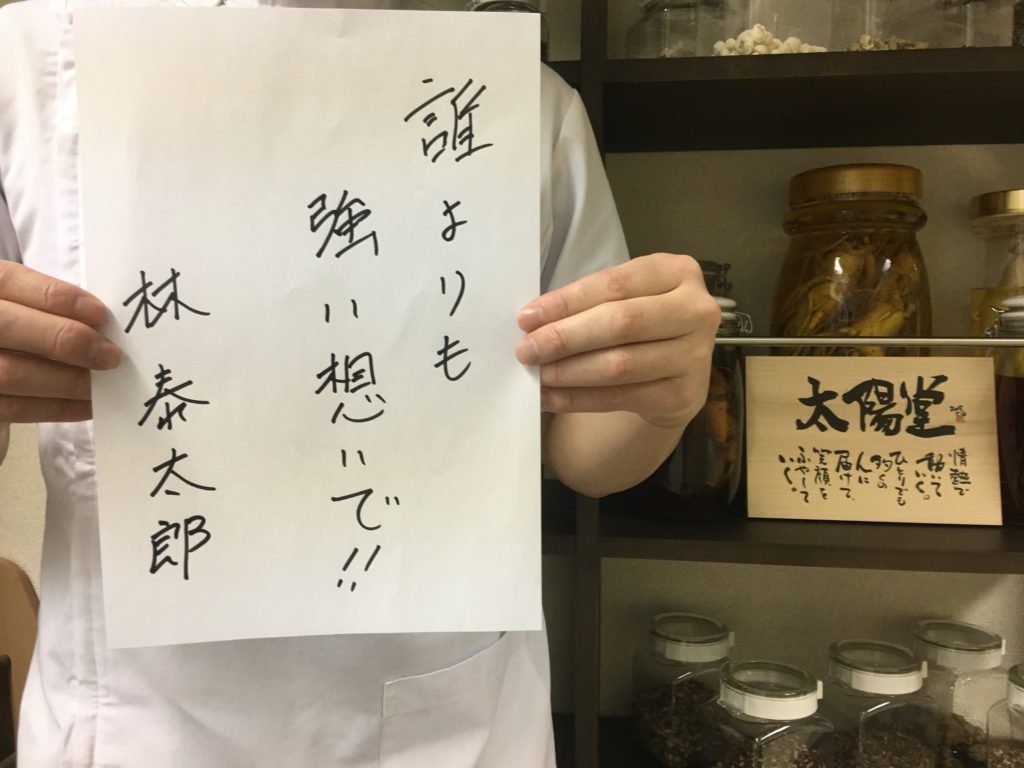 誰よりも
強い想いで!!
林泰太郎
太陽堂
情熱で
動いて
いく。
ひとりでも
多くの
人に
届けて、
笑顔を
ふやして
いく。